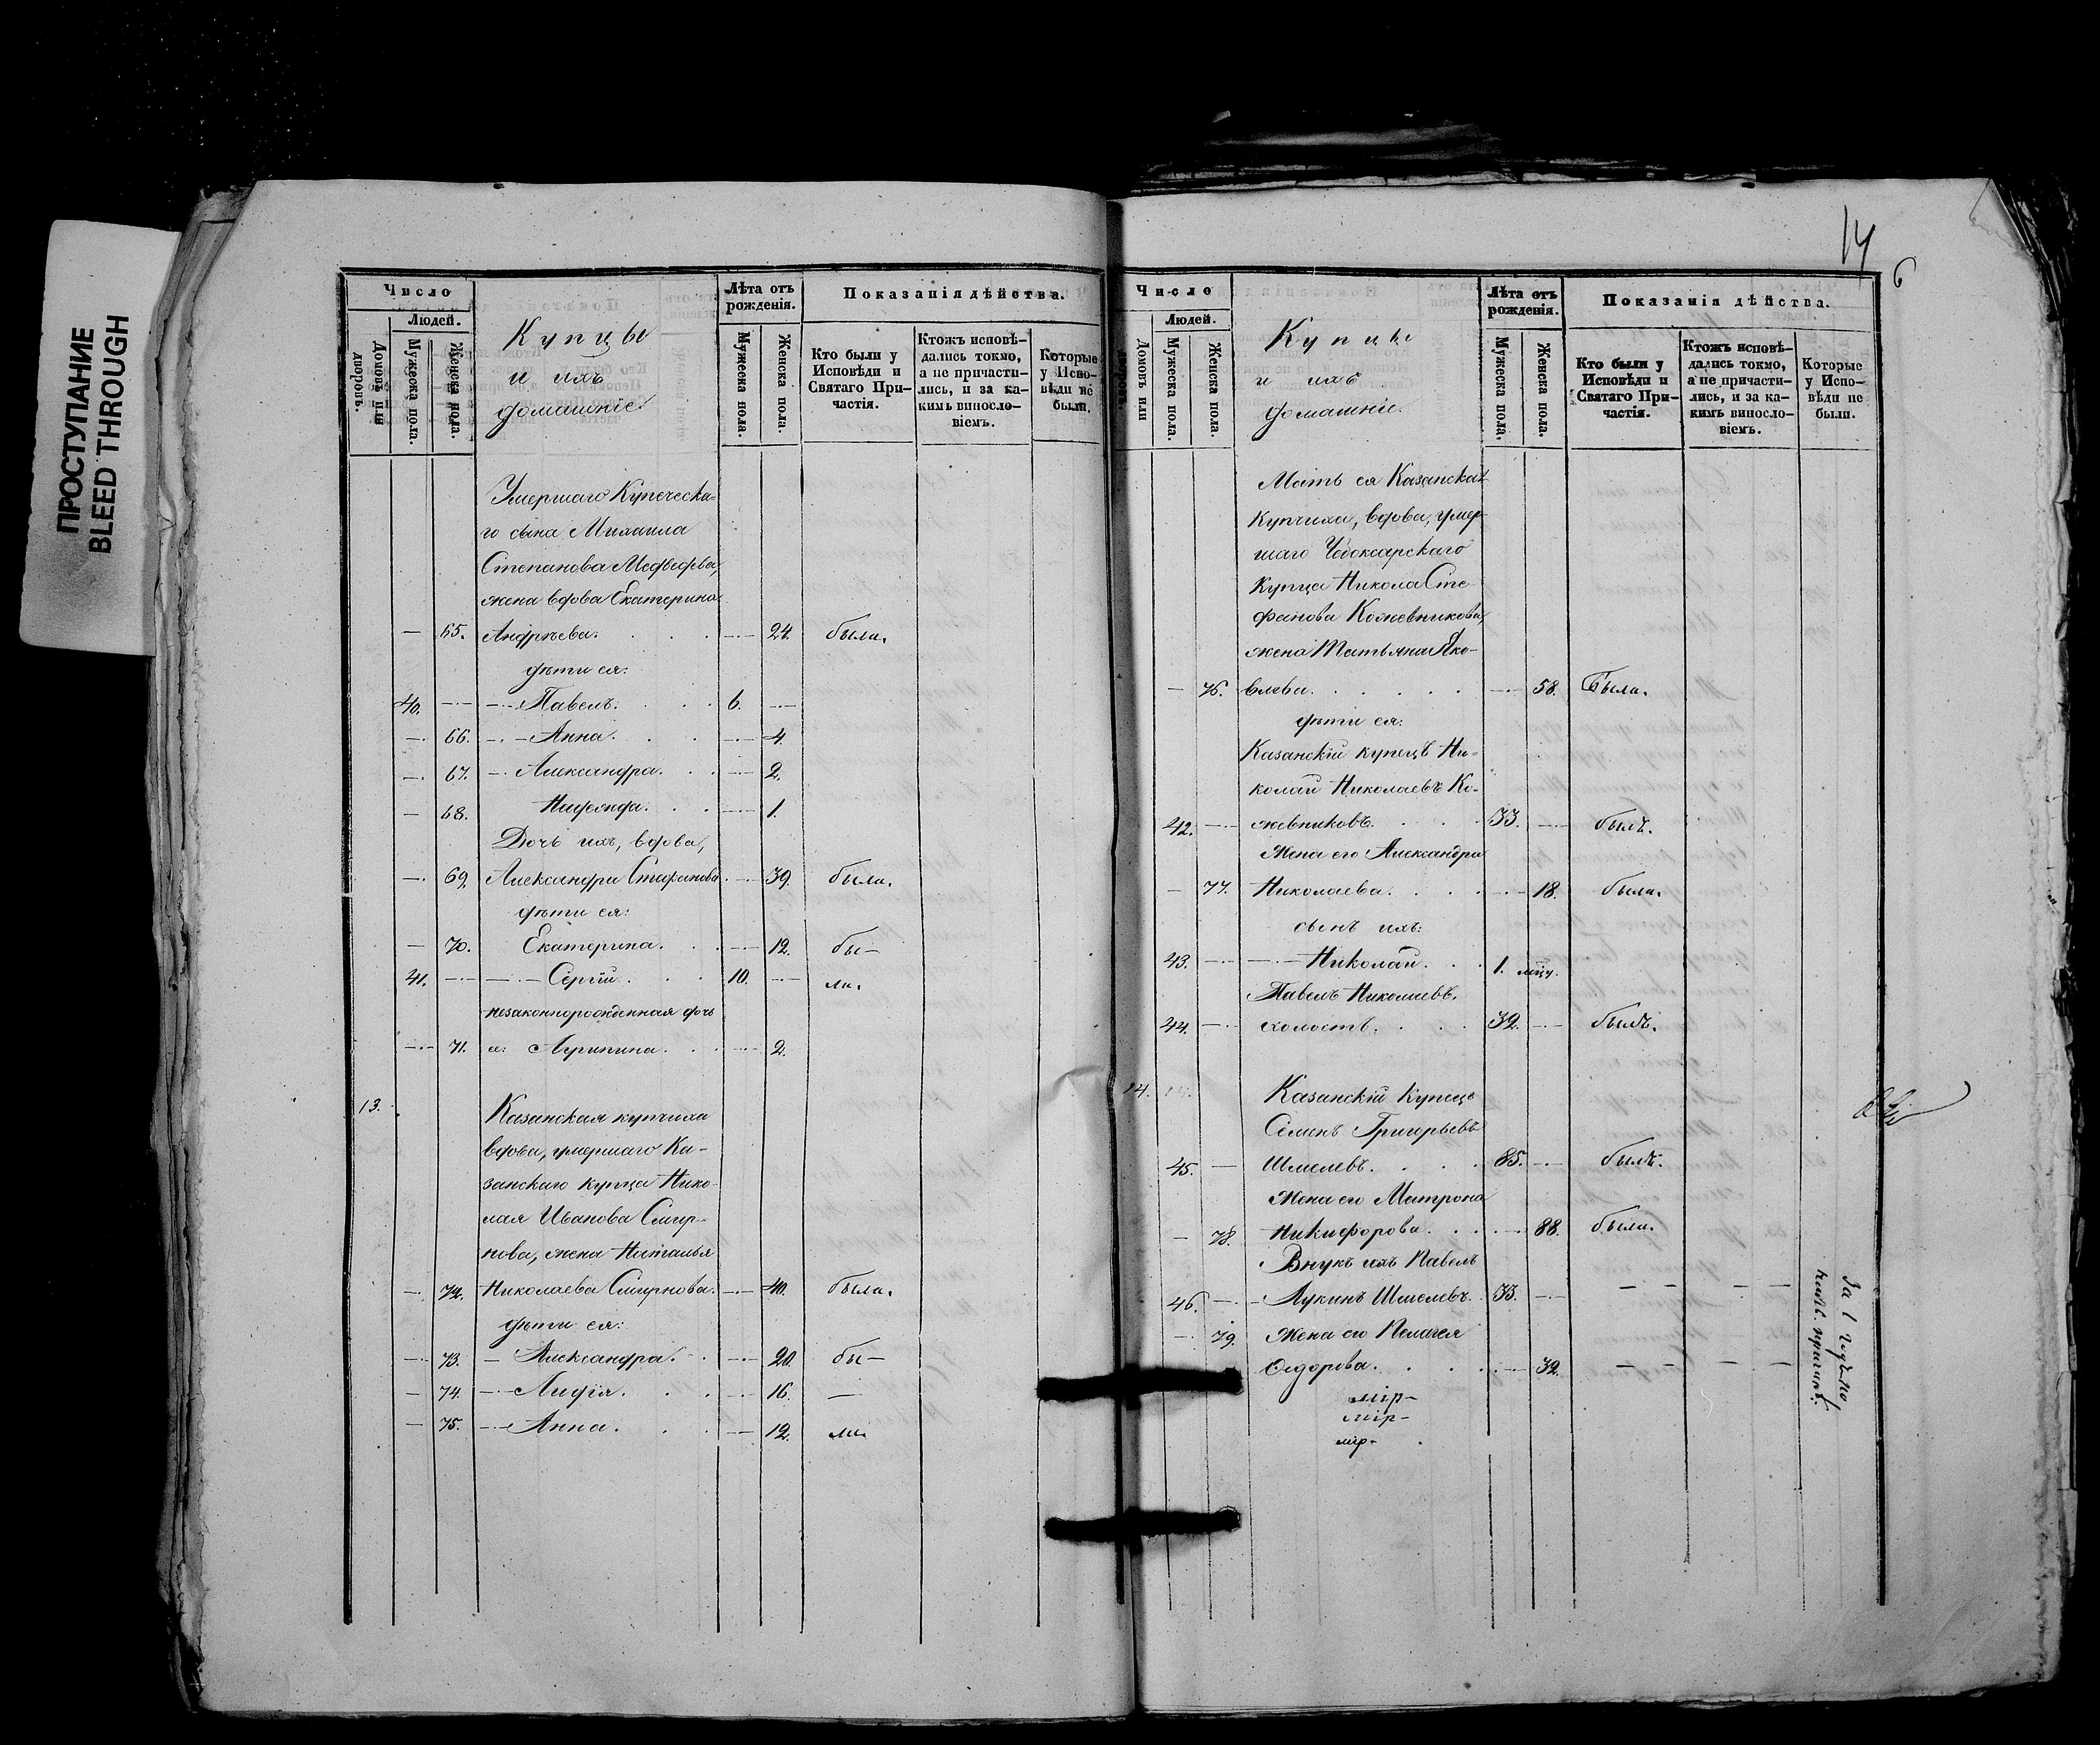 ПРОСТУПАНИЕ
BLEED THROUGH
Число
Людей.
Домовъ или дворовъ.
Мужеска пола.
Женска пола.
Купцы
и ихъ
домашніе.
Лѣта отъ рожденія.
Мужеска пола.
Женска пола.
Показанія дѣйства.
Кто были у Исповѣди и Святаго При-частія.
Ктожъ исповѣ-дались токмо, а не причасти-лись, и за ка-кимъ винослo-віемъ.
Которые у Испо-вѣди не были.
Умершаго Купеческа-
го сына Михаила
Степанова Медвѣдева,
жена вдова Екатерина
— 65. Андрѣева. — 24. была.
дѣти ея:
40. — Павелъ. 6. —
— 66. — Анна. — 4.
— 67. — Александра. — 2.
— 68. — 1.
Дочь ихъ, вдова,
— 69. Александра Стефанова — 39. была.
дѣти ея:
— 70. Екатерина. — 12. бы—
41. — Сергій. 10. — ли.
незаконнорожденная дочь
— 71. ея: Агрипина. — 2.
13. Казанская купчиха
вдова, умершаго Ка-
занскаго купца Нико-
лая Иванова Смир-
нова, жена Наталья
— 72. Николаева Смирнова. — 40. была.
дѣти ея:
— 73. — Александра. — 20. бы—
— 74. — Лидія. — 16. —
— 75. — Анна. — 12. ли.
14
6
Число
Людей.
Домовъ или дворовъ.
Мужеска пола.
Женска пола.
Купцы
и ихъ
домашніе.
Лѣта отъ рожденія.
Мужеска пола.
Женска пола.
Показанія дѣйства.
Кто были у Исповѣди и Святаго При-частія.
Ктожъ исповѣ-дались токмо, а не причасти-лись, и за ка-кимъ винослo-віемъ.
Которые у Испо-вѣди не были.
Мать ея Казанская
купчиха, вдова, умер-
шаго Чебоксарскаго
Купца Никола Сте-
фанова Кожевникова,
жена Татьяна Яко-
— 76. влева. — 58. Была.
дѣти ея:
Казанскій купецъ Ни-
колай Николаевъ Ко-
42. — жевниковъ. 33. — былъ.
Жена его Александра
— 77. Николаева. — 18. была.
сынъ ихъ:
43. — Николай. 1. мѣц.
Павелъ Николаевъ.
44. — холостъ. 32. — былъ.
14. Казанскій Купецъ
Семенъ Григорьевъ
45. — Шмелевъ. 85. — былъ.
Жена его Матрона
— 78. Никифорова. — 88. была.
Внукъ ихъ Павелъ
46. — Лукинъ Шмелевъ. 33. — — — — —
— 79. Жена его Пелагея
Ѳедорова. — 32. — — — —